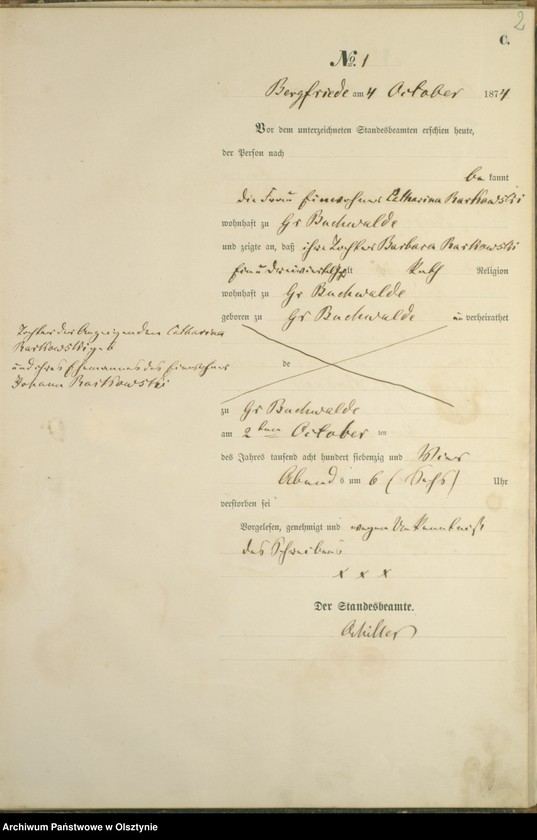 2
C.
No. 1
Bergfriede am 4 October 1874
Vor dem unterzeichneten Standesbeamten erschien heute,
der Person nach
bekannt
die Frau Einwohner Catharina Rarkowski
wohnhaft zu Gr Buchwalde
und zeigte an, daß ihre Tochter Barbara Rarkowski
alt Kath Religion
wohnhaft zu Gr Buchwalde
geboren zu Gr Buchwalde unverheirathet
Tochter der Anzeigenden Catharina
Rarkowski geb
und ihres Ehemannes des Einwohner
Johann Rarkowski
de
zu Gr Buchwalde
am 2ten October ten
des Jahres tausend acht hundert siebenzig und Vier
Abends um 6 (Sechs) Uhr
verstorben sei
Vorgelesen, genehmigt und wegen Unkenntniß
des Schreibens
x x x
Der Standesbeamte.
Archiwum Państwowe w Olsztynie